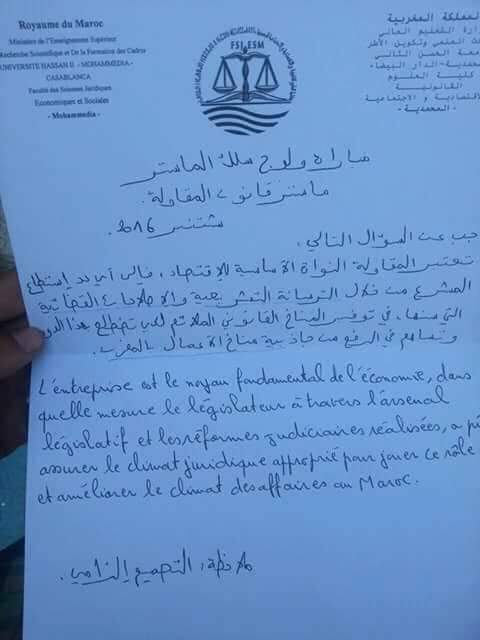 Royaume du Maroc
Ministère de l'Enseignement Supérieur
Recherche Scientifique et de la Formation des Cadres
UNIVERSITE HASSAN II - MOHAMMEDIA -
CASABLANCA
Faculté des Sciences Juridiques
Economiques et Sociales
- Mohammedia -
FSJESM
المملكة المغربية
وزارة التعليم العالي
البحث العلمي وتكوين الأطر
جامعة الحسن الثاني
المحمدية - الدار البيضاء
كلية العلوم
القانونية
الاقتصادية و الاجتماعية
- المحمدية -
مباراة ولوج سلك الماستر
ماستر قانون المقاولة
شتنبر 2016
أجب عن السؤال التالي.
تعتبر المقاولة النواة الأساسية للاقتصاد، فإلى أي حد استطاع
المشرع من خلال الترسانة التشريعية والإصلاحات القضائية
التي، في توفير المناخ القانوني الملائم لكي تضطلع بهذا الدور
وتساهم في الرفع من جاذبية مناخ الأعمال بالمغرب.
L'entreprise est le noyau fondamental de l'économie, dans
quelle mesure le législateur à travers l'arsenal
législatif et les réformes judiciaires réalisées, a pu
assurer le climat juridique approprié pour jouer ce rôle
et améliorer le climat des affaires au Maroc.
ملاحظة: التصميم إلزامي.